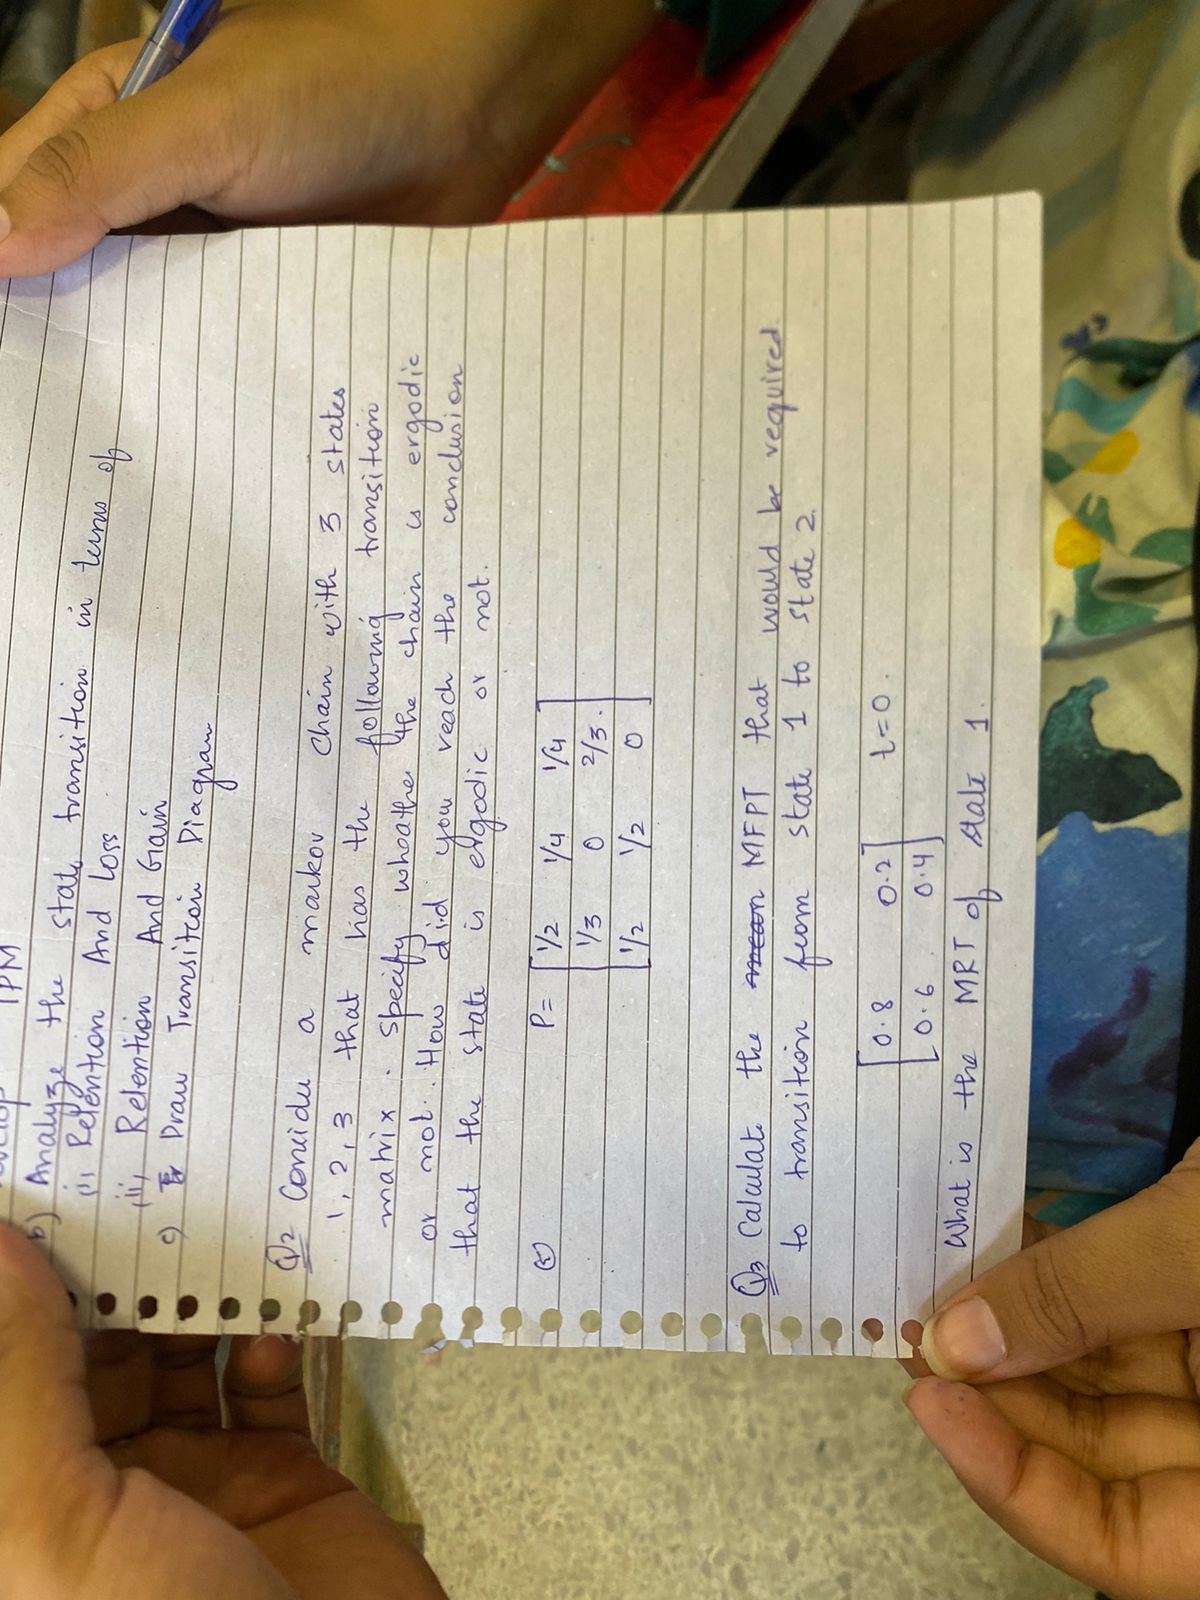 TPM
b) Analyze the state transition in terms of
(i) Retention And Loss
(ii) Retention And Gain
c) Draw Transition Diagram
Q2 Consider a markov chain with 3 states
1, 2, 3 that has the following transition
matrix. specify wheathe the chain is ergodic
or not. How did you reach the conclusion
that the state is ergodic or not.
P = [ 1/2 1/4 1/4
1/3 0 2/3.
1/2 1/2 0 ]
Q3 Calculate the mean MFPT that would be required.
to transition from state 1 to state 2.
[ 0.8 0.2 t=0.
0.6 0.4 ]
What is the MRT of state 1.